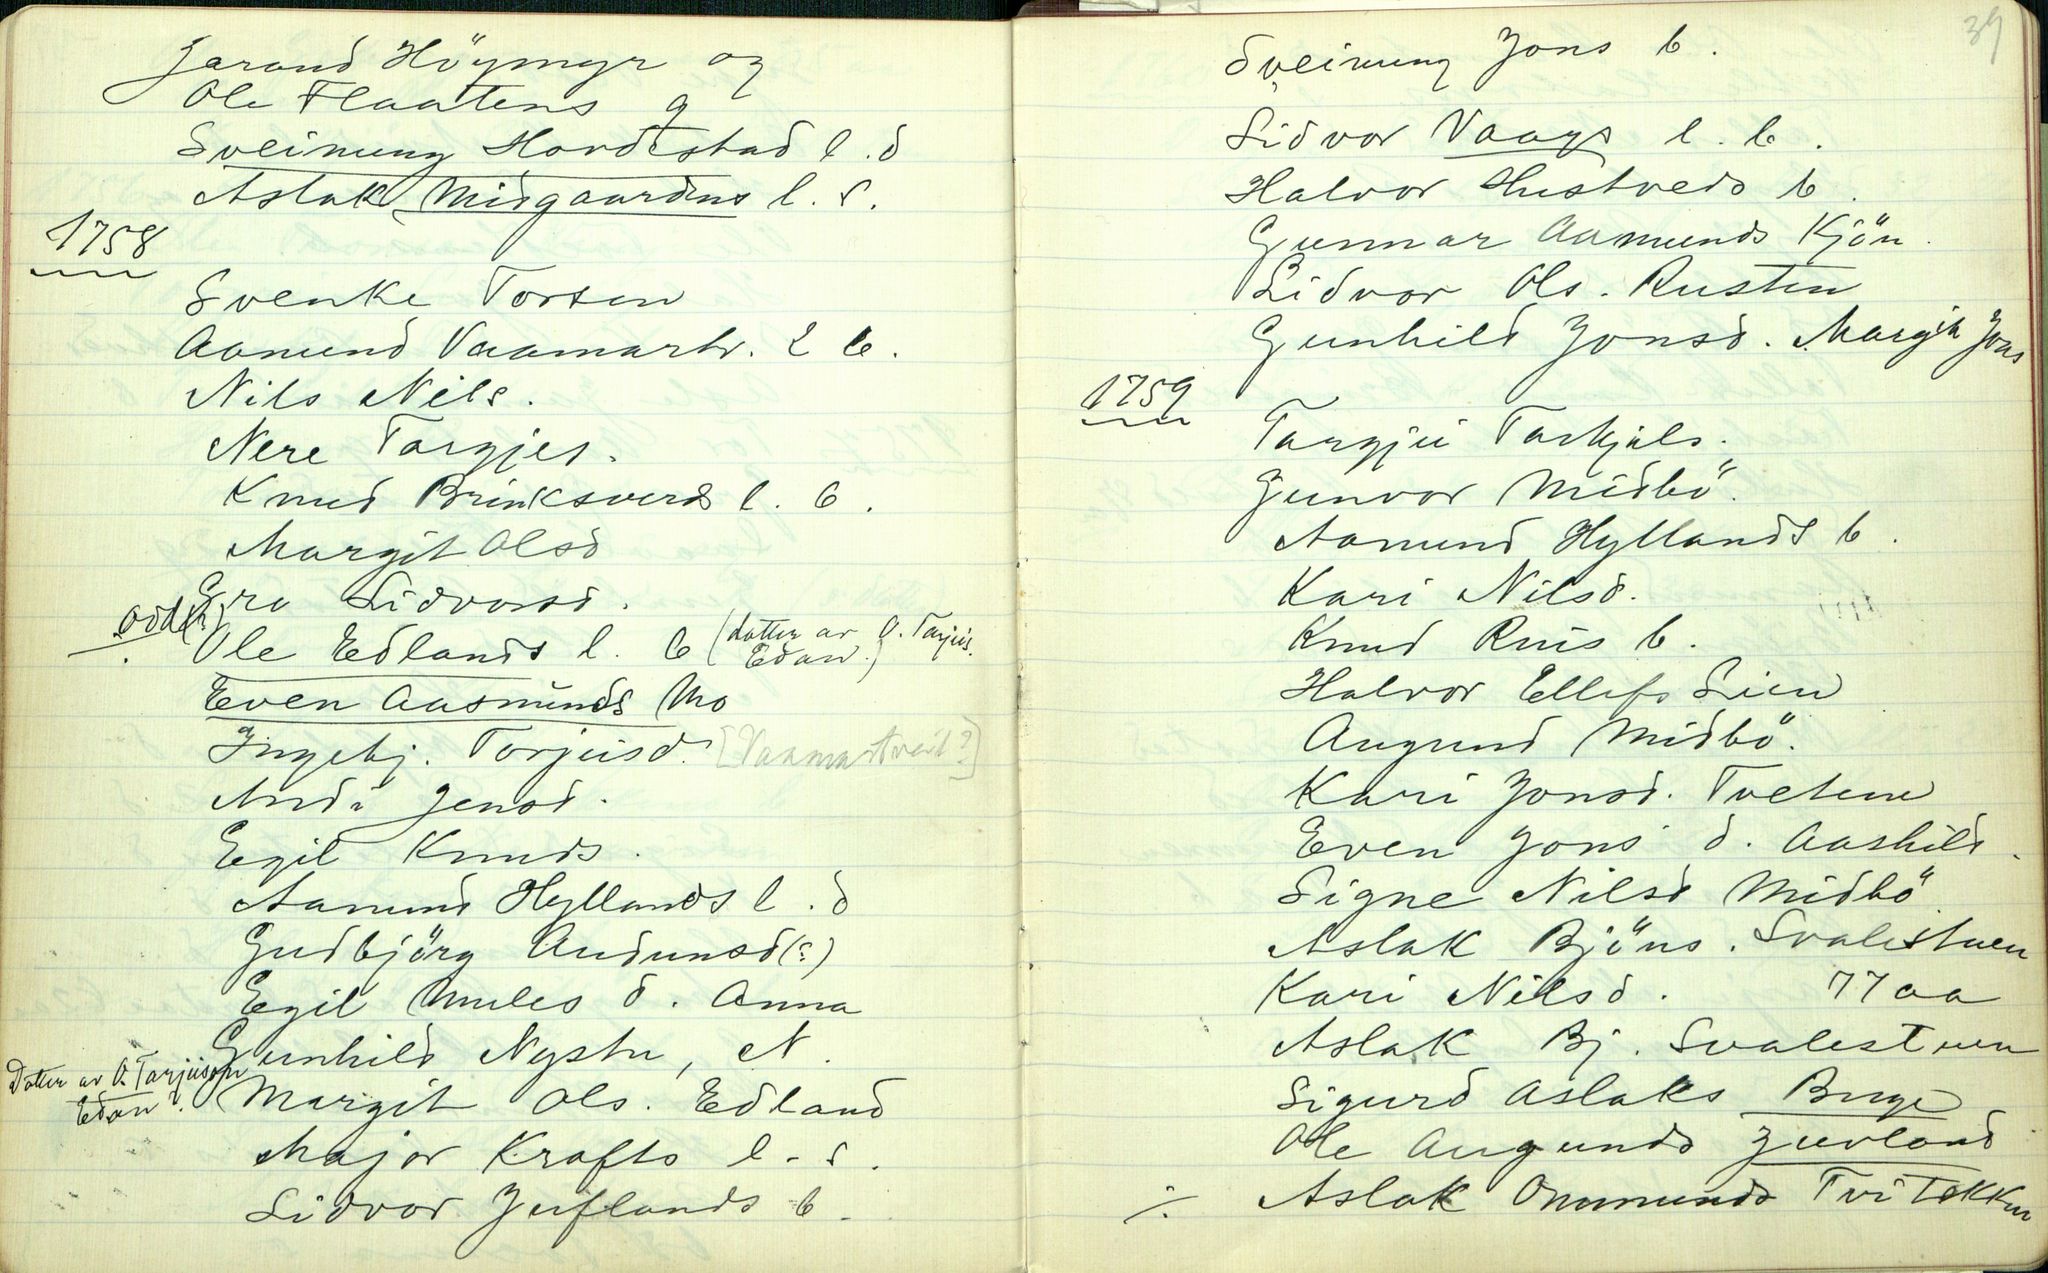 Jarand Höymyr og
Ole Flaatens g
Sveinung Hordestad l. d
Aslak Midgaardens l. s.
1758
Svenke Torsen
Aamund Vaamartv. l b.
Nils Nils.
Nere Targjes.
Knud Brinksverds l. b.
Margit Olsd
Gro Sidvorsd.
Odd(?)
Ole Edlands l. b (datter av O. Tarjeis. Edan.)
Even Aasmunds Mo
Ingebj. Torjusd. [Vaamartveit?]
Andi Jensd.
Egil Knuds.
Aamund Hyllands l. d
Gudbjörg Audunsd(?)
Egil Mules d. Anna
Gunhild Nystu, N.
Datter av O. Tarjeison Edan?
Margit Ols. Edland
Major Krafts l. s.
Sidvor Juflands b.
39
Sveinung Jons b.
Sidvor Vaags l. b.
Halvor Hustveds b.
Gunnar Aamunds Kjön.
Lidvor Ols. Rusten
Gunhild Jonsd. Margit Jons
1759
Targjei Tarkjels.
Gunvor Midbö.
Aamund Hyllands b.
Kari Nilsd.
Knud Ruis b.
Halvor Ellefs Lien
Augund Midbö.
Kari Jonsd. Tveten
Even Jons d. Aashild.
Signe Nilsd Midbö
Aslak Bjöns. Svalestuen
Kari Nilsd. 77 aa
Aslak Bj. Svalestuen
Sigurd Aslaks Buge
Ole Augunds Juvland
÷ Aslak Ommunds Tvitekkin